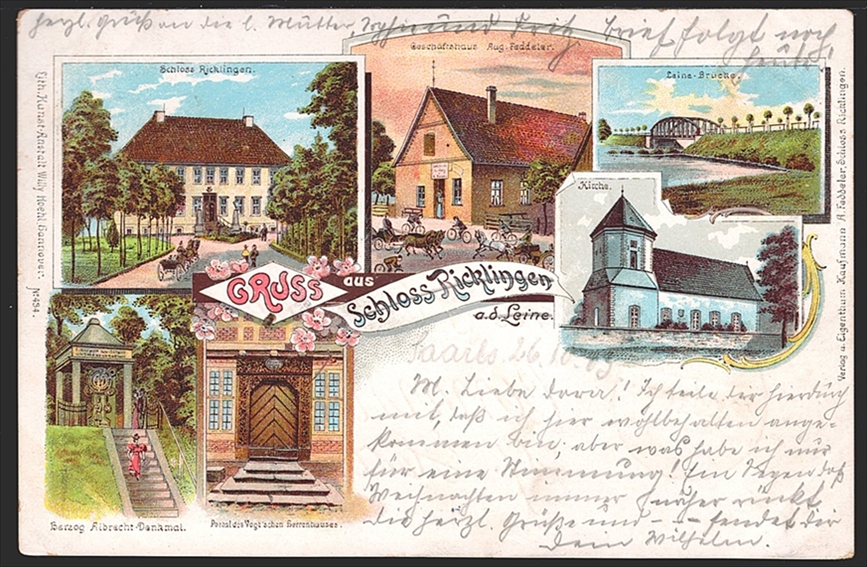 herzl. grüß an die l. Mutter, Sophie und Fritz. Brief folgt noch
heute!
Geschäftshaus Aug. Feddeler.
Schloss Ricklingen.
Leine-Brücke.
Kirche.
Lith.-Kunst-Anstalt Willy Hoehl, Hannover. No. 484.
Verlag u. Eigenthum Kaufmann A. Feddeler, Schloss Ricklingen.
GRUSS aus Schloss Ricklingen
a.d. Leine.
Herzog Albrecht-Denkmal.
Portal des Vogt'schen Herrenhauses.
M. Liebe Dora! Ich teile dir hierdurch
mit, daß ich hier wohlbehalten ange-
kommen bin; aber was habe ich nur
für eine Stimmung! Ein Segen daß
Weihnachten immer näher rückt
die herzl. Grüße und - - - sendet dir
dein Wilhelm.